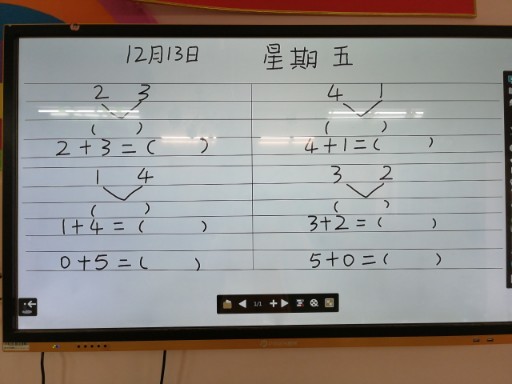 12月13日 星期五
2 3 4 1
( ) ( )
2+3=( ) 4+1=( )
1 4 3 2
( ) ( )
1+4=( ) 3+2=( )
0+5=( ) 5+0=( )
1/1